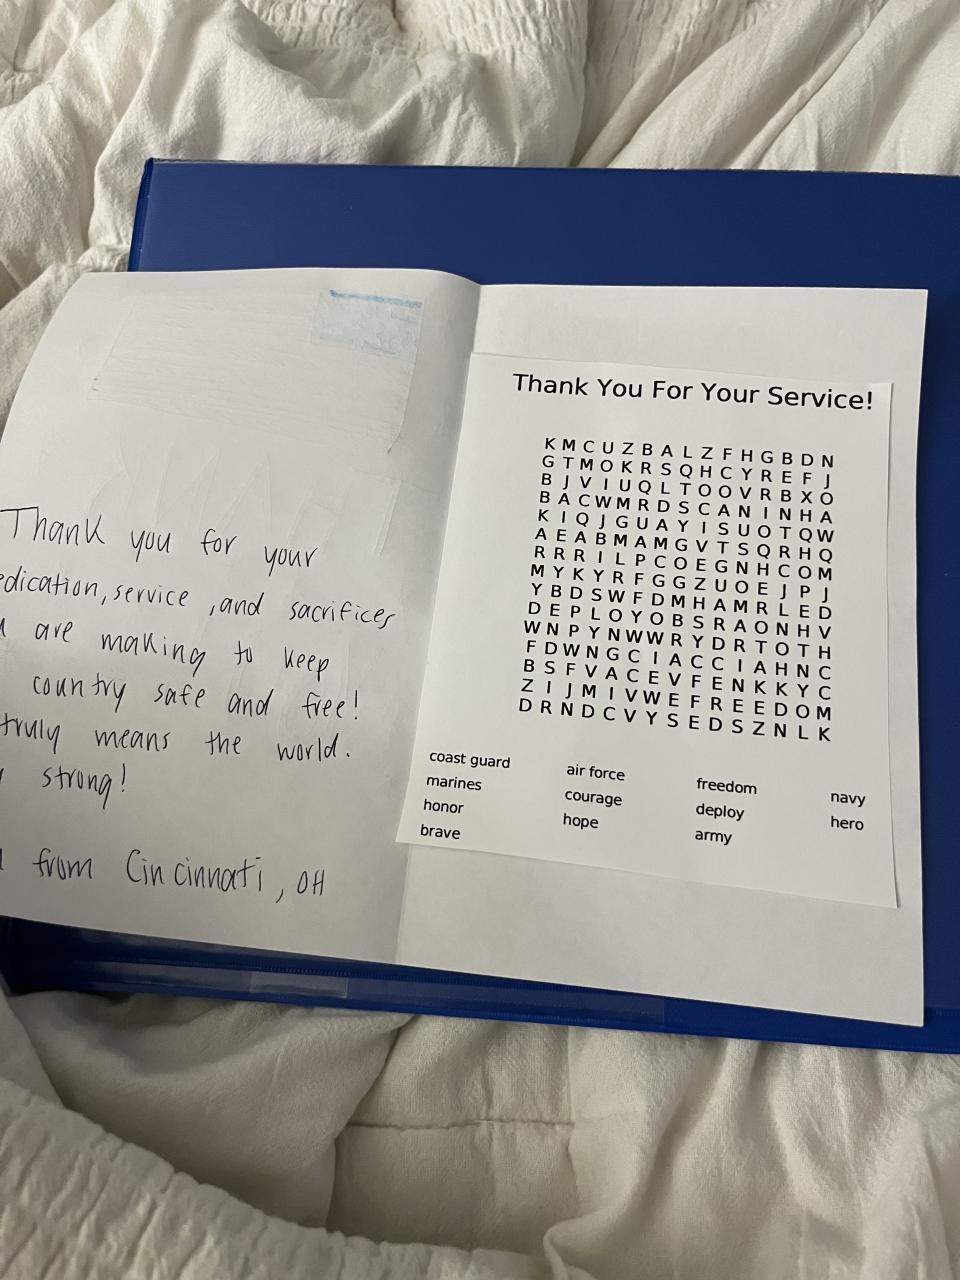 Thank you for your
service, and sacrifices
are making to keep
country safe and free!
truly means the world.
strong!
from Cincinnati, OH
Thank You For Your Service!
K M C U Z B A L Z F H G B D N
G T M O K R S Q H C Y R E F J
B J V I U Q L T O O V R B X O
B A C W M R D S C A N I N H A
K I Q J G U A Y I S U O T Q W
A E A B M A M G V T S Q R H Q
R R R I L P C O E G N H C O M
M Y K Y R F G G Z U O E J P J
Y B D S W F D M H A M R L E D
D E P L O Y O B S R A O N H V
W N P Y N W W R Y D R T O T H
F D W N G C I A C C I A H N C
B S F V A C E V F E N K K Y C
Z I J M I V W E F R E E D O M
D R N D C V Y S E D S Z N L K
coast guard air force freedom navy
marines courage deploy hero
honor hope army
brave